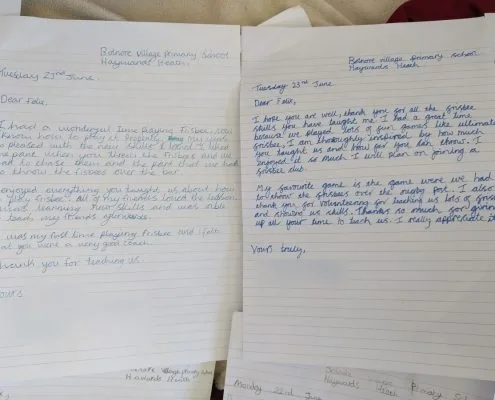 Bolnore Village Primary School
Haywards Heath,
Tuesday 23rd June.
Dear Felix,
I had a wonderful time playing frisbee, now
I know how to play it properly. I was
so pleased with the new skills I learnt. I liked
the part when you threw the frisbees and we
had to chase them and the part that we had
to throw the frisbees over the bar.
enjoyed everything you taught us about how
to play frisbee. All of my friends loved the lesson
I loved learning new skills and was able
to teach my friends afterwards.
was my first time playing frisbee and I felt
that you were a very good coach.
Thank you for teaching us.
Yours
Bolnore Village primary school
Haywards Heath
Tuesday 23rd June.
Dear Felix,
I hope you are well, thank you for all the frisbee
skills you have taught me. I had a great time
because we played lots of fun games like ultimate
frisbee, I am thoroughly inspired by how much
you taught us and how far you can throw. I
enjoyed it so much I will plan on joining a
frisbee club.
My favourite game is the game were we had
to throw the frisbees over the rugby post. I also
thank you for volunteering for teaching us lots of frisbee
and showing us skills. Thanks so much for giving
up all your time to teach us. I really appreciate
Yours truly,
Village primary
Haywards Heath
Monday 22nd June
Primary
Haywards Heath